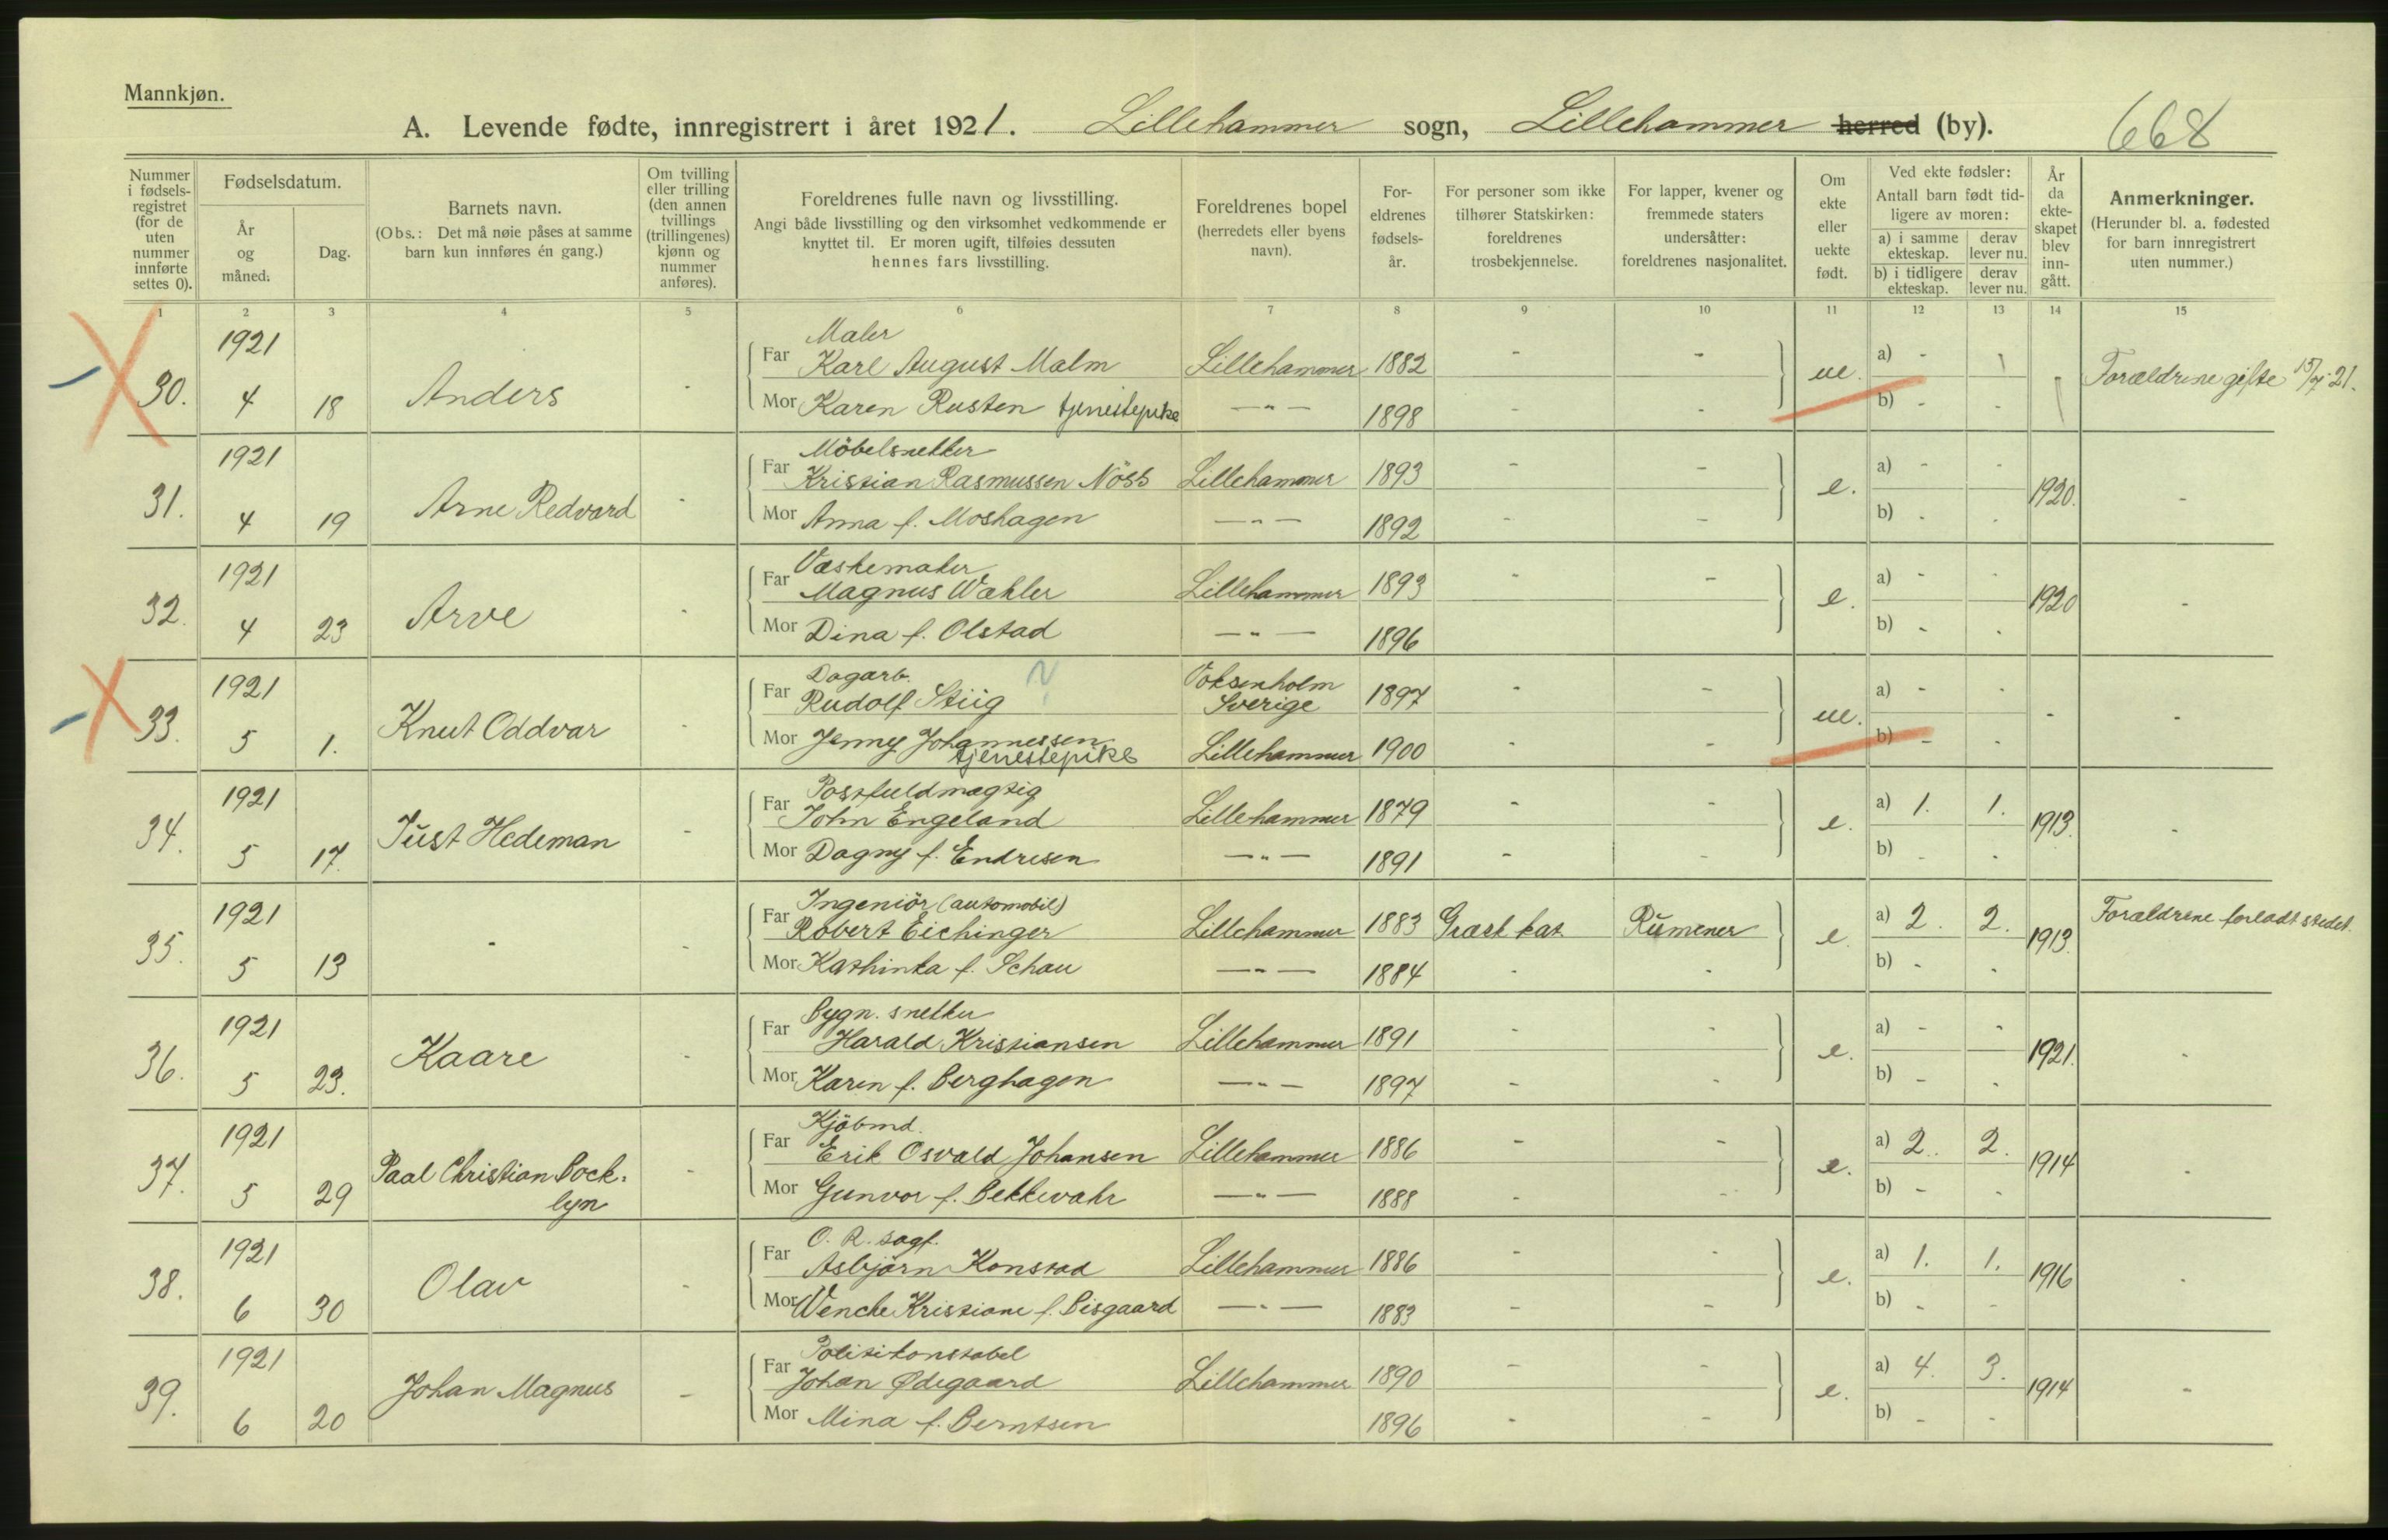 Mannkjøn.
A. Levende fødte, innregistrert i året 1921. Lillehammer sogn, Lillehammer herred (by). 668
Nummer i fødsels-registret (for de uten nummer innførte settes 0).
Fødselsdatum.
År og måned.
Dag.
Barnets navn.
(Obs.: Det må nøie påses at samme barn kun innføres én gang.)
Om tvilling eller trilling (den annen tvillings (trillingenes) kjønn og nummer anføres).
Foreldrenes fulle navn og livsstilling.
Angi både livsstilling og den virksomhet vedkommende er knyttet til. Er moren ugift, tilføies dessuten hennes fars livsstilling.
Foreldrenes bopel (herredets eller byens navn).
For-eldrenes fødsels-år.
For personer som ikke tilhører Statskirken: foreldrenes trosbekjennelse.
For lapper, kvener og fremmede staters undersåtter: foreldrenes nasjonalitet.
Om ekte eller uekte født.
Ved ekte fødsler: Antall barn født tid-ligere av moren:
a) i samme ekteskap. derav lever nu.
b) i tidligere ekteskap. derav lever nu.
År da ekte-skapet blev inn-gått.
Anmerkninger.
(Herunder bl. a. fødested for barn innregistrert uten nummer.)
1 2 3 4 5 6 7 8 9 10 11 12 13 14 15
1921 Maler
30. 4 18 Anders - Far Karl August Malm Lillehammer 1882 - - ue. a) - Forældrene gifte 15/7 21.
Mor Karen Rusten tjenestepike —"— 1898 - - b) - -
1921 Möbelsnekker
31. 4 19 Arne Redvard - Far Kristian Rasmussen Nöss Lillehammer 1893 - - e. a) - - 1920. -
Mor Anna f. Moshagen —"— 1892 - - b) - -
1921 Væskemaker
32. 4 23 Arve - Far Magnus Wahler Lillehammer 1893 - - e. a) - - 1920 -
Mor Dina f. Olstad —"— 1896 b) - -
1921 Dagarb. ? Voksenholm
33. 5 1. Knut Oddvar - Far Rudolf Stiig Sverige 1897 - - ue. a) - - - -
Mor Jenny Johannessen tjenestepike Lillehammer 1900 - - b) - -
1921 Postfuldmægtig
34. 5 17. Just Hedeman - Far John Engeland Lillehammer 1879 - - e. a) 1. 1. 1913. -
Mor Dagny f. Endresen —"— 1891 - - b) - -
1921 Ingeniör (automobil)
35. 5 13 - - Far Robert Eichinger Lillehammer 1883 Græsk kat. Rumener e. a) 2. 2. 1913 Forældrene forladt stedet.
Mor Kathinka f. Schau —"— 1884 - - b) - -
1921 Bygn. snekker
36. 5 23. Kaare - Far Harald Kristiansen Lillehammer 1891 - - e. a) - - 1921. -
Mor Karen f. Berghagen —"— 1897 - - b) - -
1921 Kjöbmd.
37. 5 29 Paal Christian Bock-lyn - Far Erik Osvald Johansen Lillehammer 1886 - - e. a) 2. 2. 1914 -
Mor Gunvor f. Bekkevahr —"— 1888 - - b) - -
1921 O. R. sagf.
38. 6 30 Olav - Far Asbjørn Konstad Lillehammer 1886 - - e. a) 1. 1. 1916 -
Mor Wenche Kristiane f. Bisgaard —"— 1883 - - b) - -
1921 Politikonstabel
39. 6 20 Johan Magnus - Far Johan Ødegaard Lillehammer 1890 - - e. a) 4. 3. 1914 -
Mor Mina f. Berntsen 1896 - - b) - -